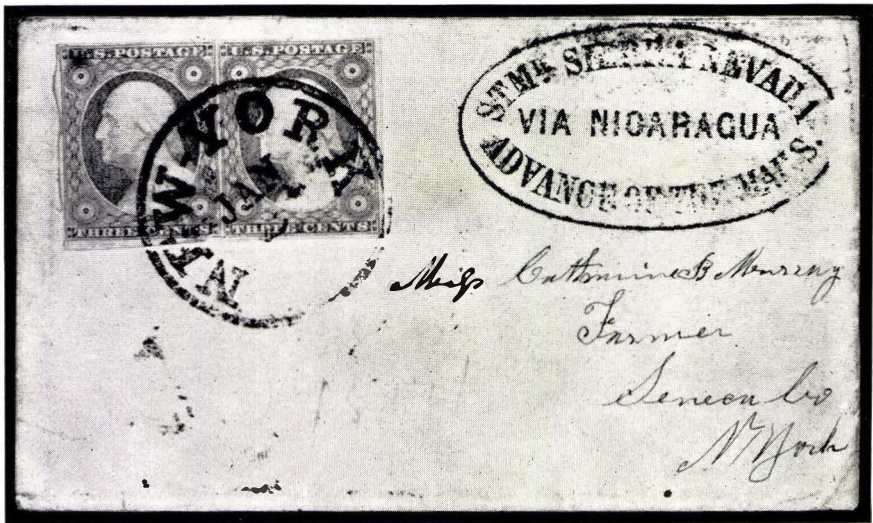 U.S. POSTAGE U.S. POSTAGE
THREE CENTS THREE CENTS
NEW-YORK
JAN
STMR SIERRA NEVADA
VIA NICARAGUA
ADVANCE OF THE MAILS.
Miss Catharine B Murray
Farmer
Seneca Co
N York